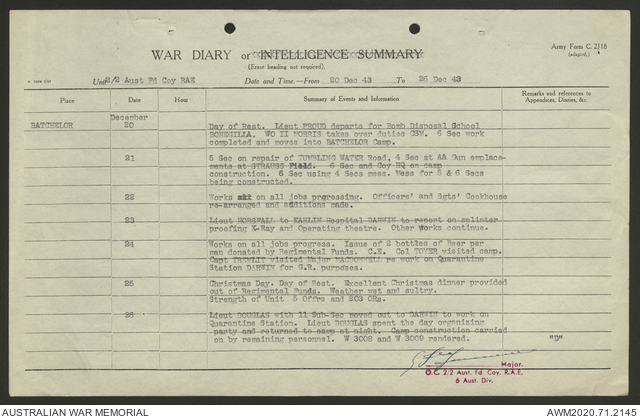 WAR DIARY or INTELLIGENCE SUMMARY
(Erase heading not required).
Army Form C. 2118
(adapted.)
Unit 2/2 Aust Fd Coy RAE Date and Time.—From 20 Dec 43 To 26 Dec 43
Place Date Hour Summary of Events and Information Remarks and references to
Appendices, Diaries, &c.
BATCHELOR December
20 Day of Rest. Lieut PROUD departs for Bomb Disposal School
BONEGILLA. WO II MORRIS takes over duties CSM. 6 Sec work
completed and moves into BATCHELOR Camp.
21 5 Sec on repair of TUMBLING WATER Road, 4 Sec at AA Gun emplace-
ments at STRAUSS Field. 6 Sec and Coy HQ on camp
construction. 6 Sec using 4 Secs mess. Mess for 5 & 6 Secs
being constructed.
22 Works on all jobs progressing. Officers' and Sgts' Cookhouse
re-arranged and additions made.
23 Lieut HORSFALL to KAHLIN Hospital DARWIN to report on splinter
proofing X-Ray and Operating theatre. Other works continue.
24 Works on all jobs progress. Issue of 2 bottles of Beer per
man donated by Regimental Funds. C.E. Col TOYER visited camp.
Capt visited Major re work on Quarantine
Station DARWIN for G.R. purposes.
25 Christmas Day. Day of Rest. Excellent Christmas dinner provided
out of Regimental Funds. Weather wet and sultry.
Strength of Unit 5 Offrs and 203 ORs.
26 Lieut DOUGLAS with 11 Sub-Sec moved out to DARWIN to work on
Quarantine Station. Lieut DOUGLAS spent the day organizing
party and returned to camp at night. Camp construction carried
on by remaining personnel. W 3008 and W 3009 rendered. "D"
Major.
O.C. 2/2 Aust. Fd. Coy. R.A.E.
6 Aust. Div.
AUSTRALIAN WAR MEMORIAL AWM2020.71.2145